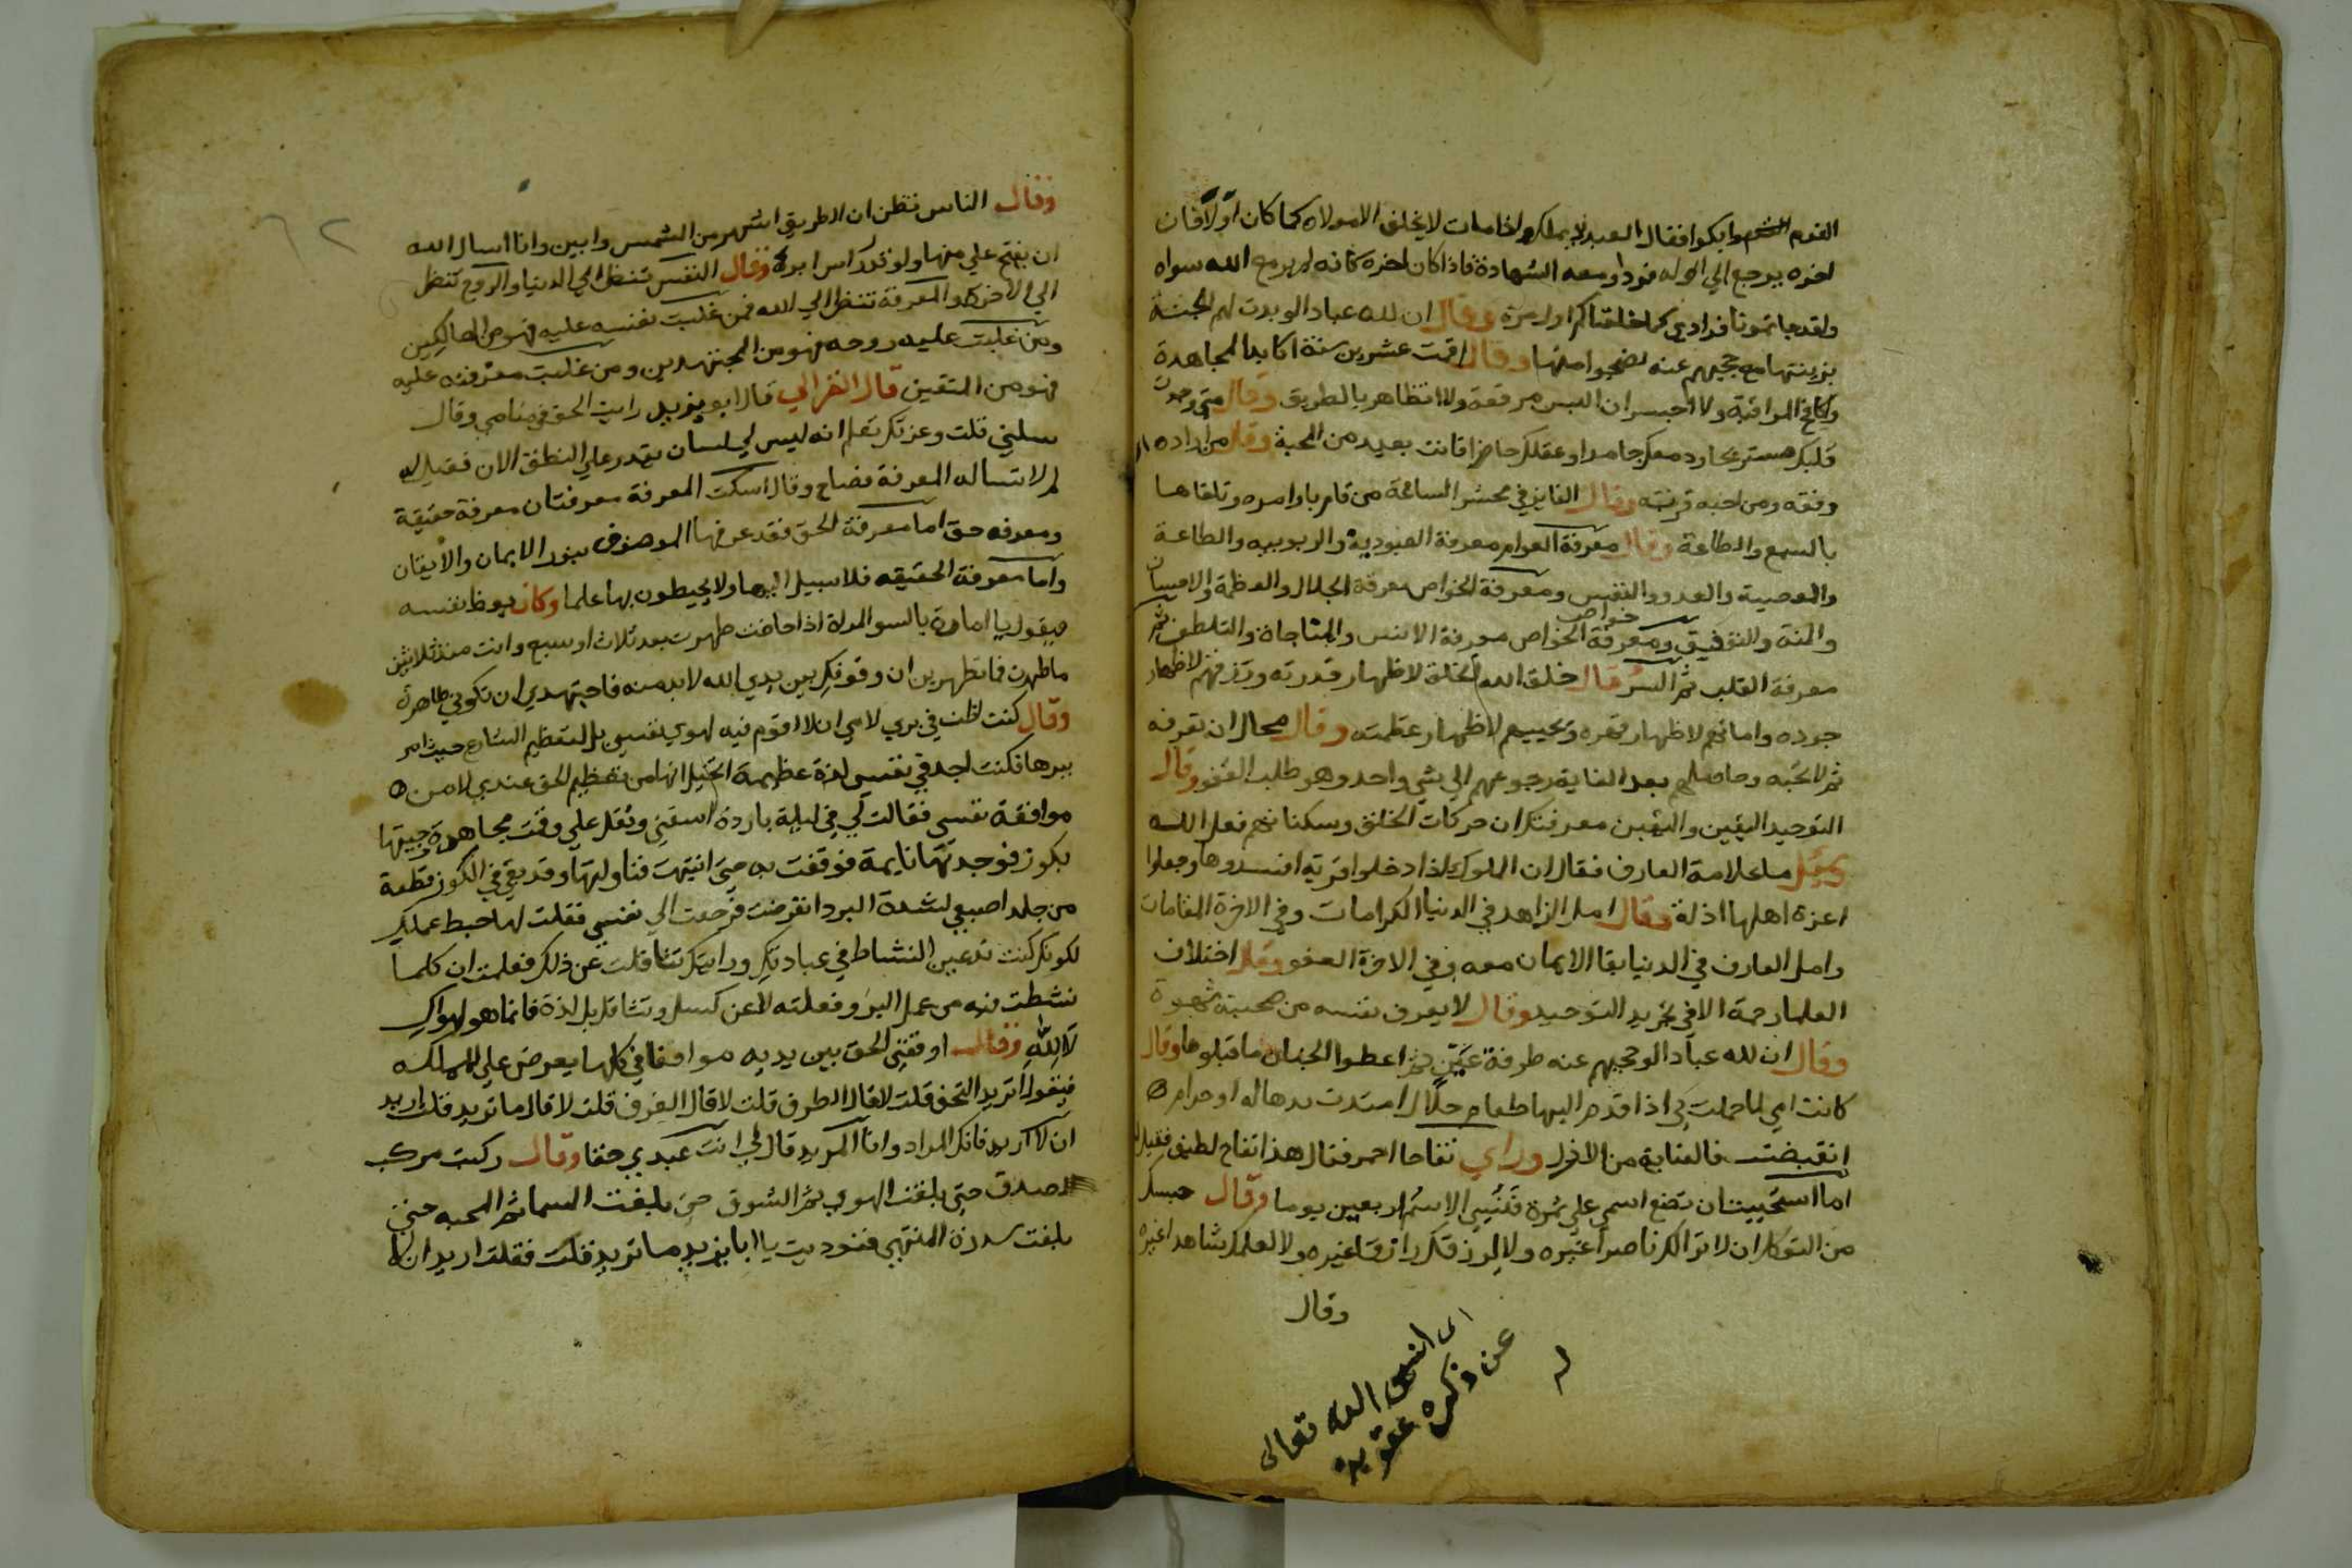 القوم وابكوا فقال العبد لا يملك اذا مات لا يخلف الا مولاه كما كان اولا فان
اخره يرجع الي اوله فرد او معه الشهادة فاذا كان اخره كانه لم يرمع الله سواه
ولقد جاتمونا فرادي كما خلقناكم اول مرة وقال ان لله عبادا لو بدت لهم الجنة
بزينتها مع حجبهم عنه لضجوا منها وقال اقمت عشرين سنة اكابد المجاهدة
المراقبة ولا اجسر ان البس مرقعة ولا اتظاهر بالطريق وقال متي وجدت
قلبك دمعك جامدا وعقلك حاضرا فانت بعيد من المحبة وقال من اراده
وفقه ومن احبه قربه وقال الفايز في محشر الساعة من قام باوامره وتلقاها
بالسمع والطاعة وقال معرفة العوام معرفة العبودية والربوبيه والطاعة
والمعصية والعدو والنفس ومعرفة الخواص معرفة الجلال والعظمة والاحسان
والمنة والتوفيق ومعرفة خواص الخواص معرفة الانس والمناجاة والتلطف ثم
معرفة القلب ثم السر قال خلق الله الخلق لاظهار قدرته ورزقهم لاظهار
جوده واماتهم لاظهار قهره ويحييهم لاظهار عظمته وقال محال ان تعرفه
ثم لا تحبه وحاصلهم بعد الغاية رجوعهم الي شي واحد وهو طلب العفو وقال
التوحيد اليقين واليقين معرفتك ان حركات الخلق وسكناتهم فعل الله
وقيل ما علامة العارف فقال ان الملوك اذا دخلوا قرية افسدوها وجعلوا
اعزة اهلها اذلة وقال امل الزاهد في الدنيا الكرامات وفي الاخرة المقامات
وامل العارف في الدنيا بقا الايمان معه وفي الاخرة العفو وقال اختلاف
العلما رحمة الا في تجريد التوحيد وقال لا يعرف نفسه من صحبته شهوة
وقال ان لله عبادا لو حجبهم عنه طرفة عين ثم اعطوا الجنان ما قبلوها وقال
كانت امي لما حملت بي اذا قدم اليها طعام حلال امتدت يدها له او حرام
انقبضت فالعناية من الازل وراي تفاحا احمر فقال هذا تفاح لطيف فقيل له
اما استحييت ان تضع اسمي علي ثمرة فنسي الاسم اربعين يوما وقال حسبك
من التوكل ان لا تر الك ناصرا غيره ولا لرزقك رازقا غيره ولا لعملك شاهدا غيره
وقال
انسي الله تعالى
عن ذكره عقوبة
له
٦٢
وقال الناس تظن ان الطريق اشهر من الشمس وابين وانا اسال الله
ان يفتح علي منها ولو قدر راس ابرة وقال النفس تنظر الي الدنيا والروح تنظر
الي الاخرة والمعرفة تنظر الي الله فمن غلبت نفسه عليه فهو من الهالكين
ومن غلبت عليه روحه فهو من المجتهدين ومن غلبت معرفته عليه
فهو من المتقين قال الغزالي قال ابو يزيد رايت الحق في منامي وقال
سلني قلت وعزتك تعلم انه ليس لي لسان يقدر علي النطق الان فقيل له
لم لا تساله المعرفة فصاح وقال اسكت المعرفة معرفتان معرفة حقيقة
ومعرفه حق اما معرفة الحق فقد عرفها الموصوف بنور الايمان والايقان
واما معرفة الحقيقه فلا سبيل اليها ولا يحيطون بها علما وكان يوعظ نفسه
فيقول يا امارة بالسو المراة اذا حاضت طهرت بعد ثلاث او سبع وانت منذ ثلاثين
ما طهرت فما تطهرين ان وقوفك بين يدي الله لا بد منه فاجتهدي ان تكوني طاهرة
وقال كنت اظن في بري لامي ان لا اقوم فيه لهوي نفسي بل لتعظيم الشارع حيث امر
ببرها فكنت اجد في نفسي لذة عظيمة اتخيل انها من تعظيم الحق عندي لا من
موافقة نفسي فقالت لي في ليلة باردة اسقني وثقل علي وقمت مجاهدة وجيتها
بكوز فوجدتها نايمة فوقفت به حتى انتبهت فناولتها وقد بقي في الكوز قطعة
من جلد اصبعي لشدة البرد انقرضت فرجعت الي نفسي فقلت لها حبط عملك
لكونك كنت تدعين النشاط في عبادتك ورايتك تثاقلت عن ذلك فعلمت ان كلما
نشطت فيه من عمل البر وفعلته لا عن كسل وتثاقل بل لذة فانما هو لهواك
لا لله وقال اوقفني الحق بين يديه مواقفا في كلها يعرض علي المملكه
فيقول اتريد التحف قلت لا قال الطرف قلت لا قال الغرف قلت لا قال ما تريد قلت اريد
ان لا اريد فانك المراد وانا المريد قال لي انت عبدي حقا وقال ركبت مركب
الصدق حتى بلغت الهوي ثم الشوق حتى بلغت السما ثم المحبه حتى
بلغت سدرة المنتهي فنوديت يا ابا يزيد ما تريد قلت فقلت اريد ان لا